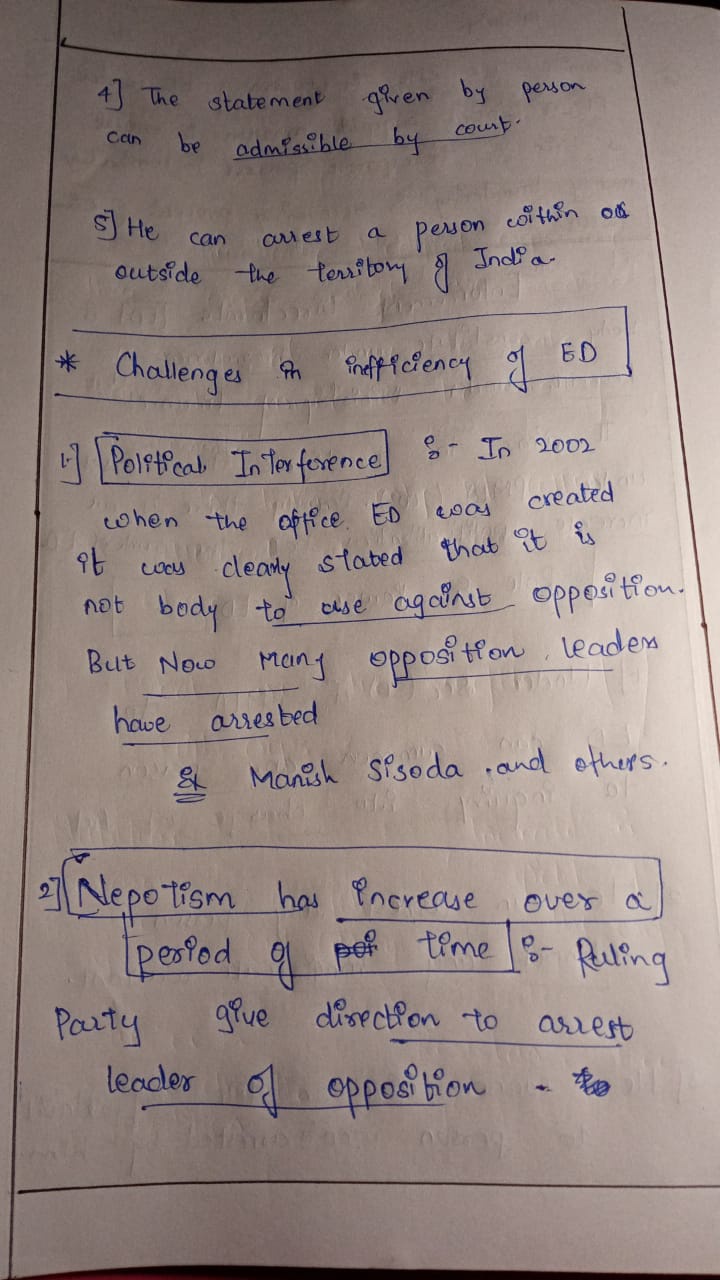 4] The statement given by person
can be admissible by court.
5] He can arrest a person within or
outside the territory of India.
* Challenges in inefficiency of ED
1.] Political Interference :- In 2002
when the office ED was created
it was clearly stated that it is
not body to use against opposition.
But Now Many opposition leaders
have arrested
Ex Manish Sisoda, and others.
2] Nepotism has increase over a
period of time :- Ruling
Party give direction to arrest
leader of opposition -